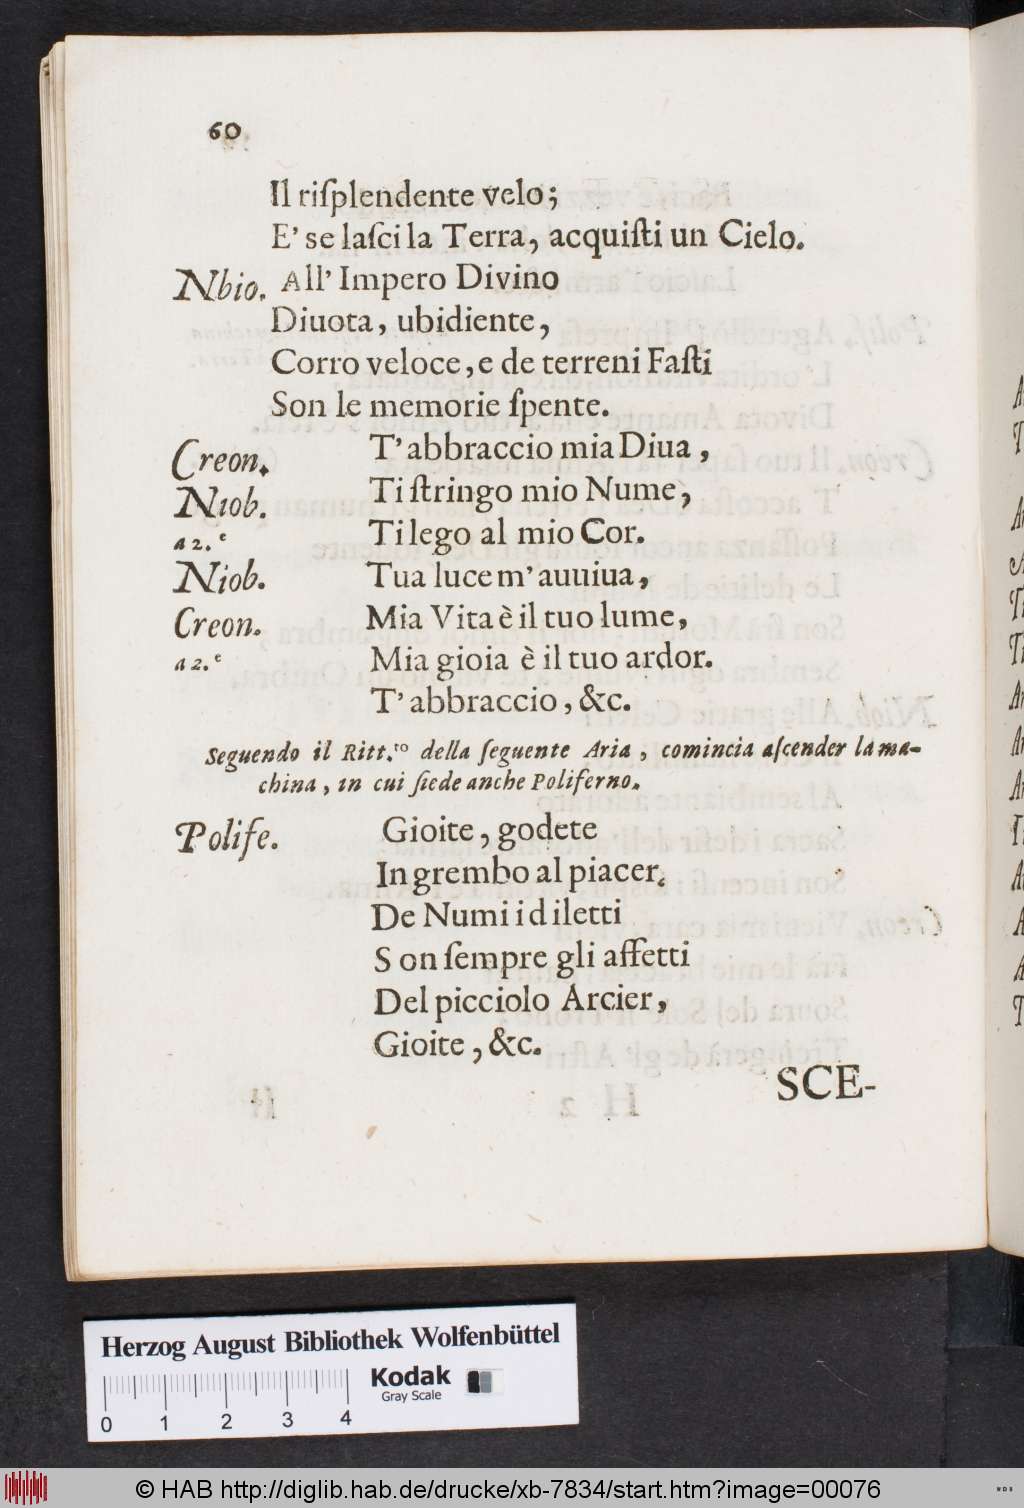 60
Il riſplendente velo;
E' se laſci la Terra, acquiſti un Cielo.
Nbio. All' Impero Divino
Diuota, ubidiente,
Corro veloce, e de terreni Faſti
Son le memorie ſpente.
Creon. T' abbraccio mia Diua,
Niob. Ti ſtringo mio Nume,
a 2.e Ti lego al mio Cor.
Niob. Tua luce m' auuiua,
Creon. Mia Vita è il tuo lume,
a 2.e Mia gioia è il tuo ardor.
T' abbraccio, &c.
Seguendo il Ritt.ro della ſeguente Aria, comincia aſcender la ma-
china, in cui ſiede anche Poliferno.
Polife. Gioite, godete
In grembo al piacer.
De Numi i diletti
Son ſempre gli affetti
Del picciolo Arcier,
Gioite, &c.
SCE-
Herzog August Bibliothek Wolfenbüttel
Kodak
Gray Scale
0 1 2 3 4
© HAB http://diglib.hab.de/drucke/xb-7834/start.htm?image=00076